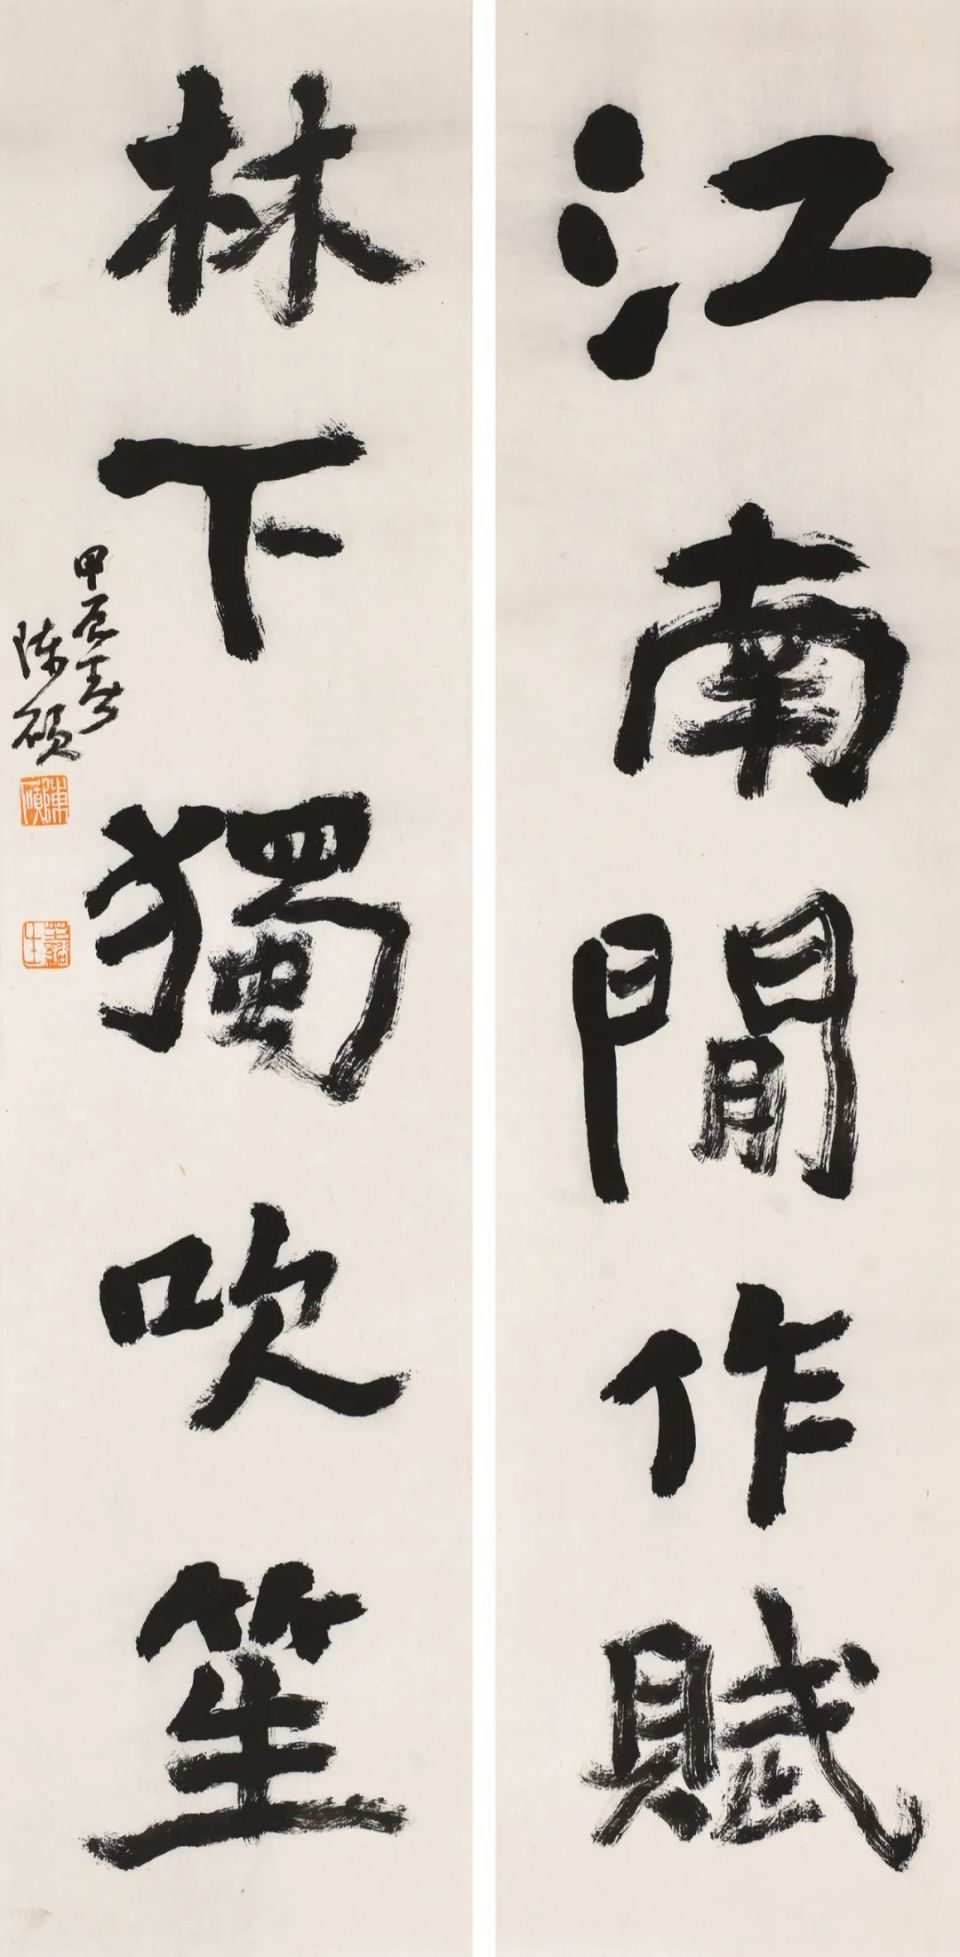 江南閒作賦
林下獨吹笙
甲辰春
陳碩
陳碩